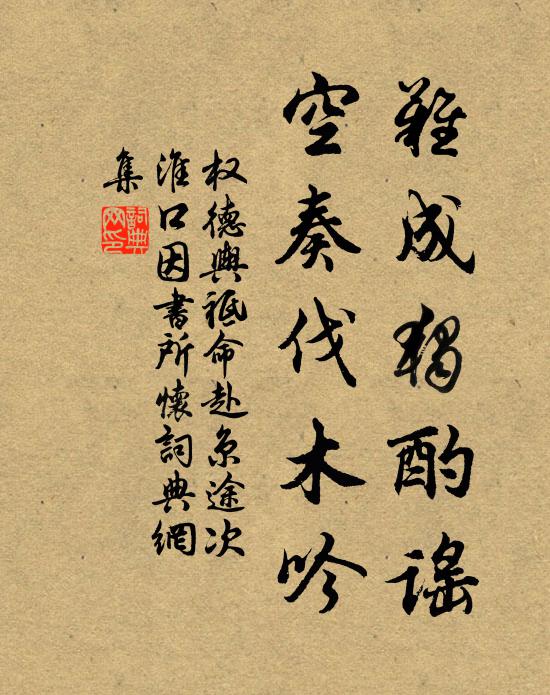 難成獨酌謠
空奏伐木吟
权德輿祗命赴京途次
淮口因書所懷詞典網
集
詞典網印